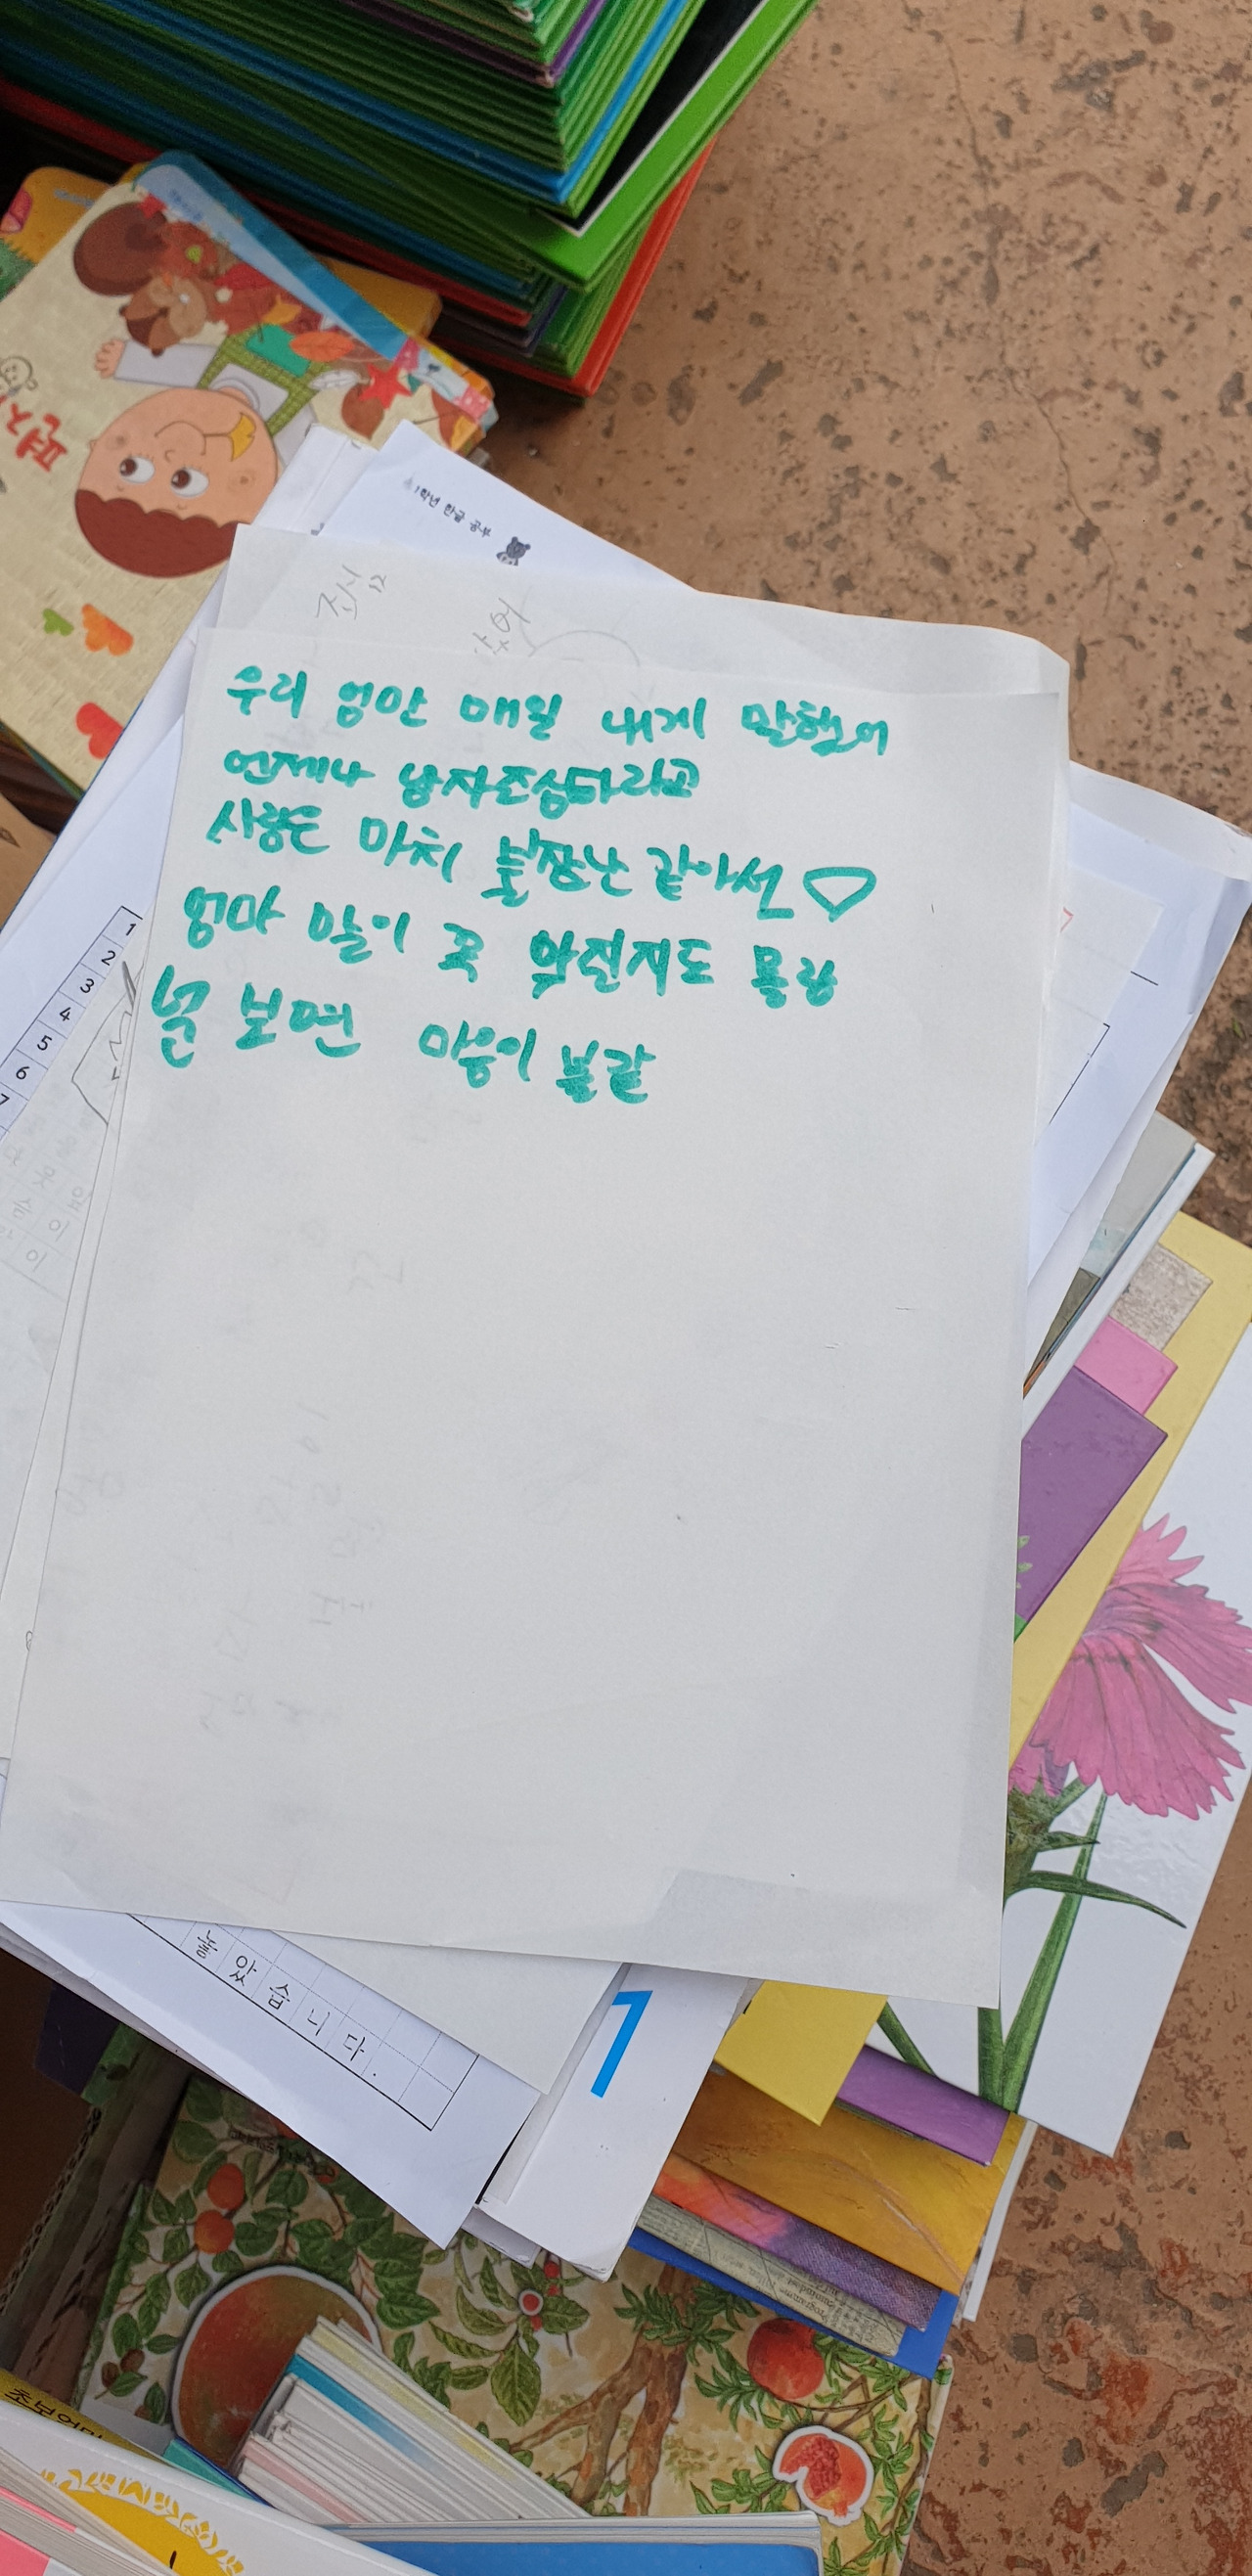 1학년 한글 공부
우리 엄만 매일 내게 말했어
언제나 남자조심하라고
사랑은 마치 불장난 같아서♡
엄마 말이 꼭 지도 몰라
널 보면 마음이 불같
1
2
3
4
5
6
7
놓았습니다.
1